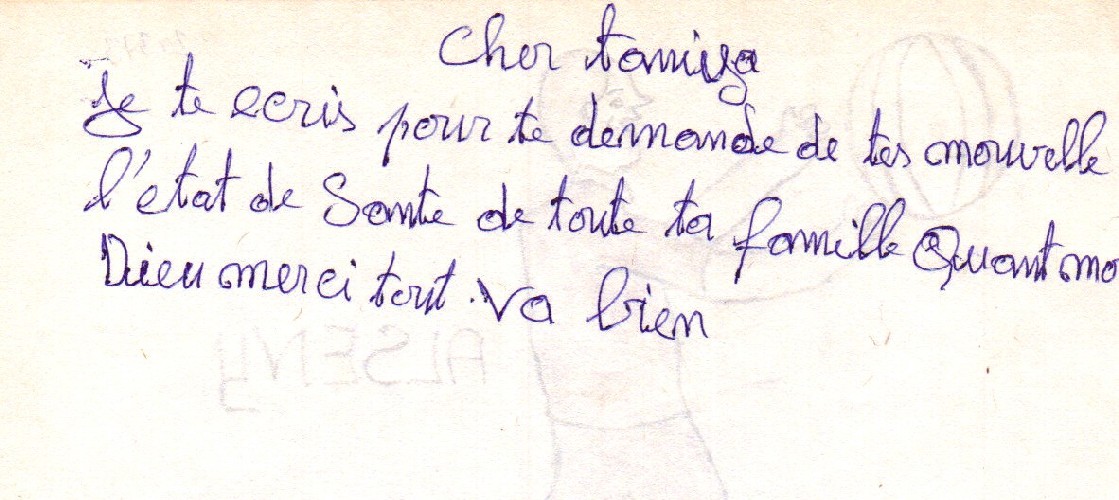 Cher tamiza
Je te ecris pour te demande de tes mouvelle
l'etat de Sante de toute ta famille Quant mo
Dieu merci tout va bien
ALSENY